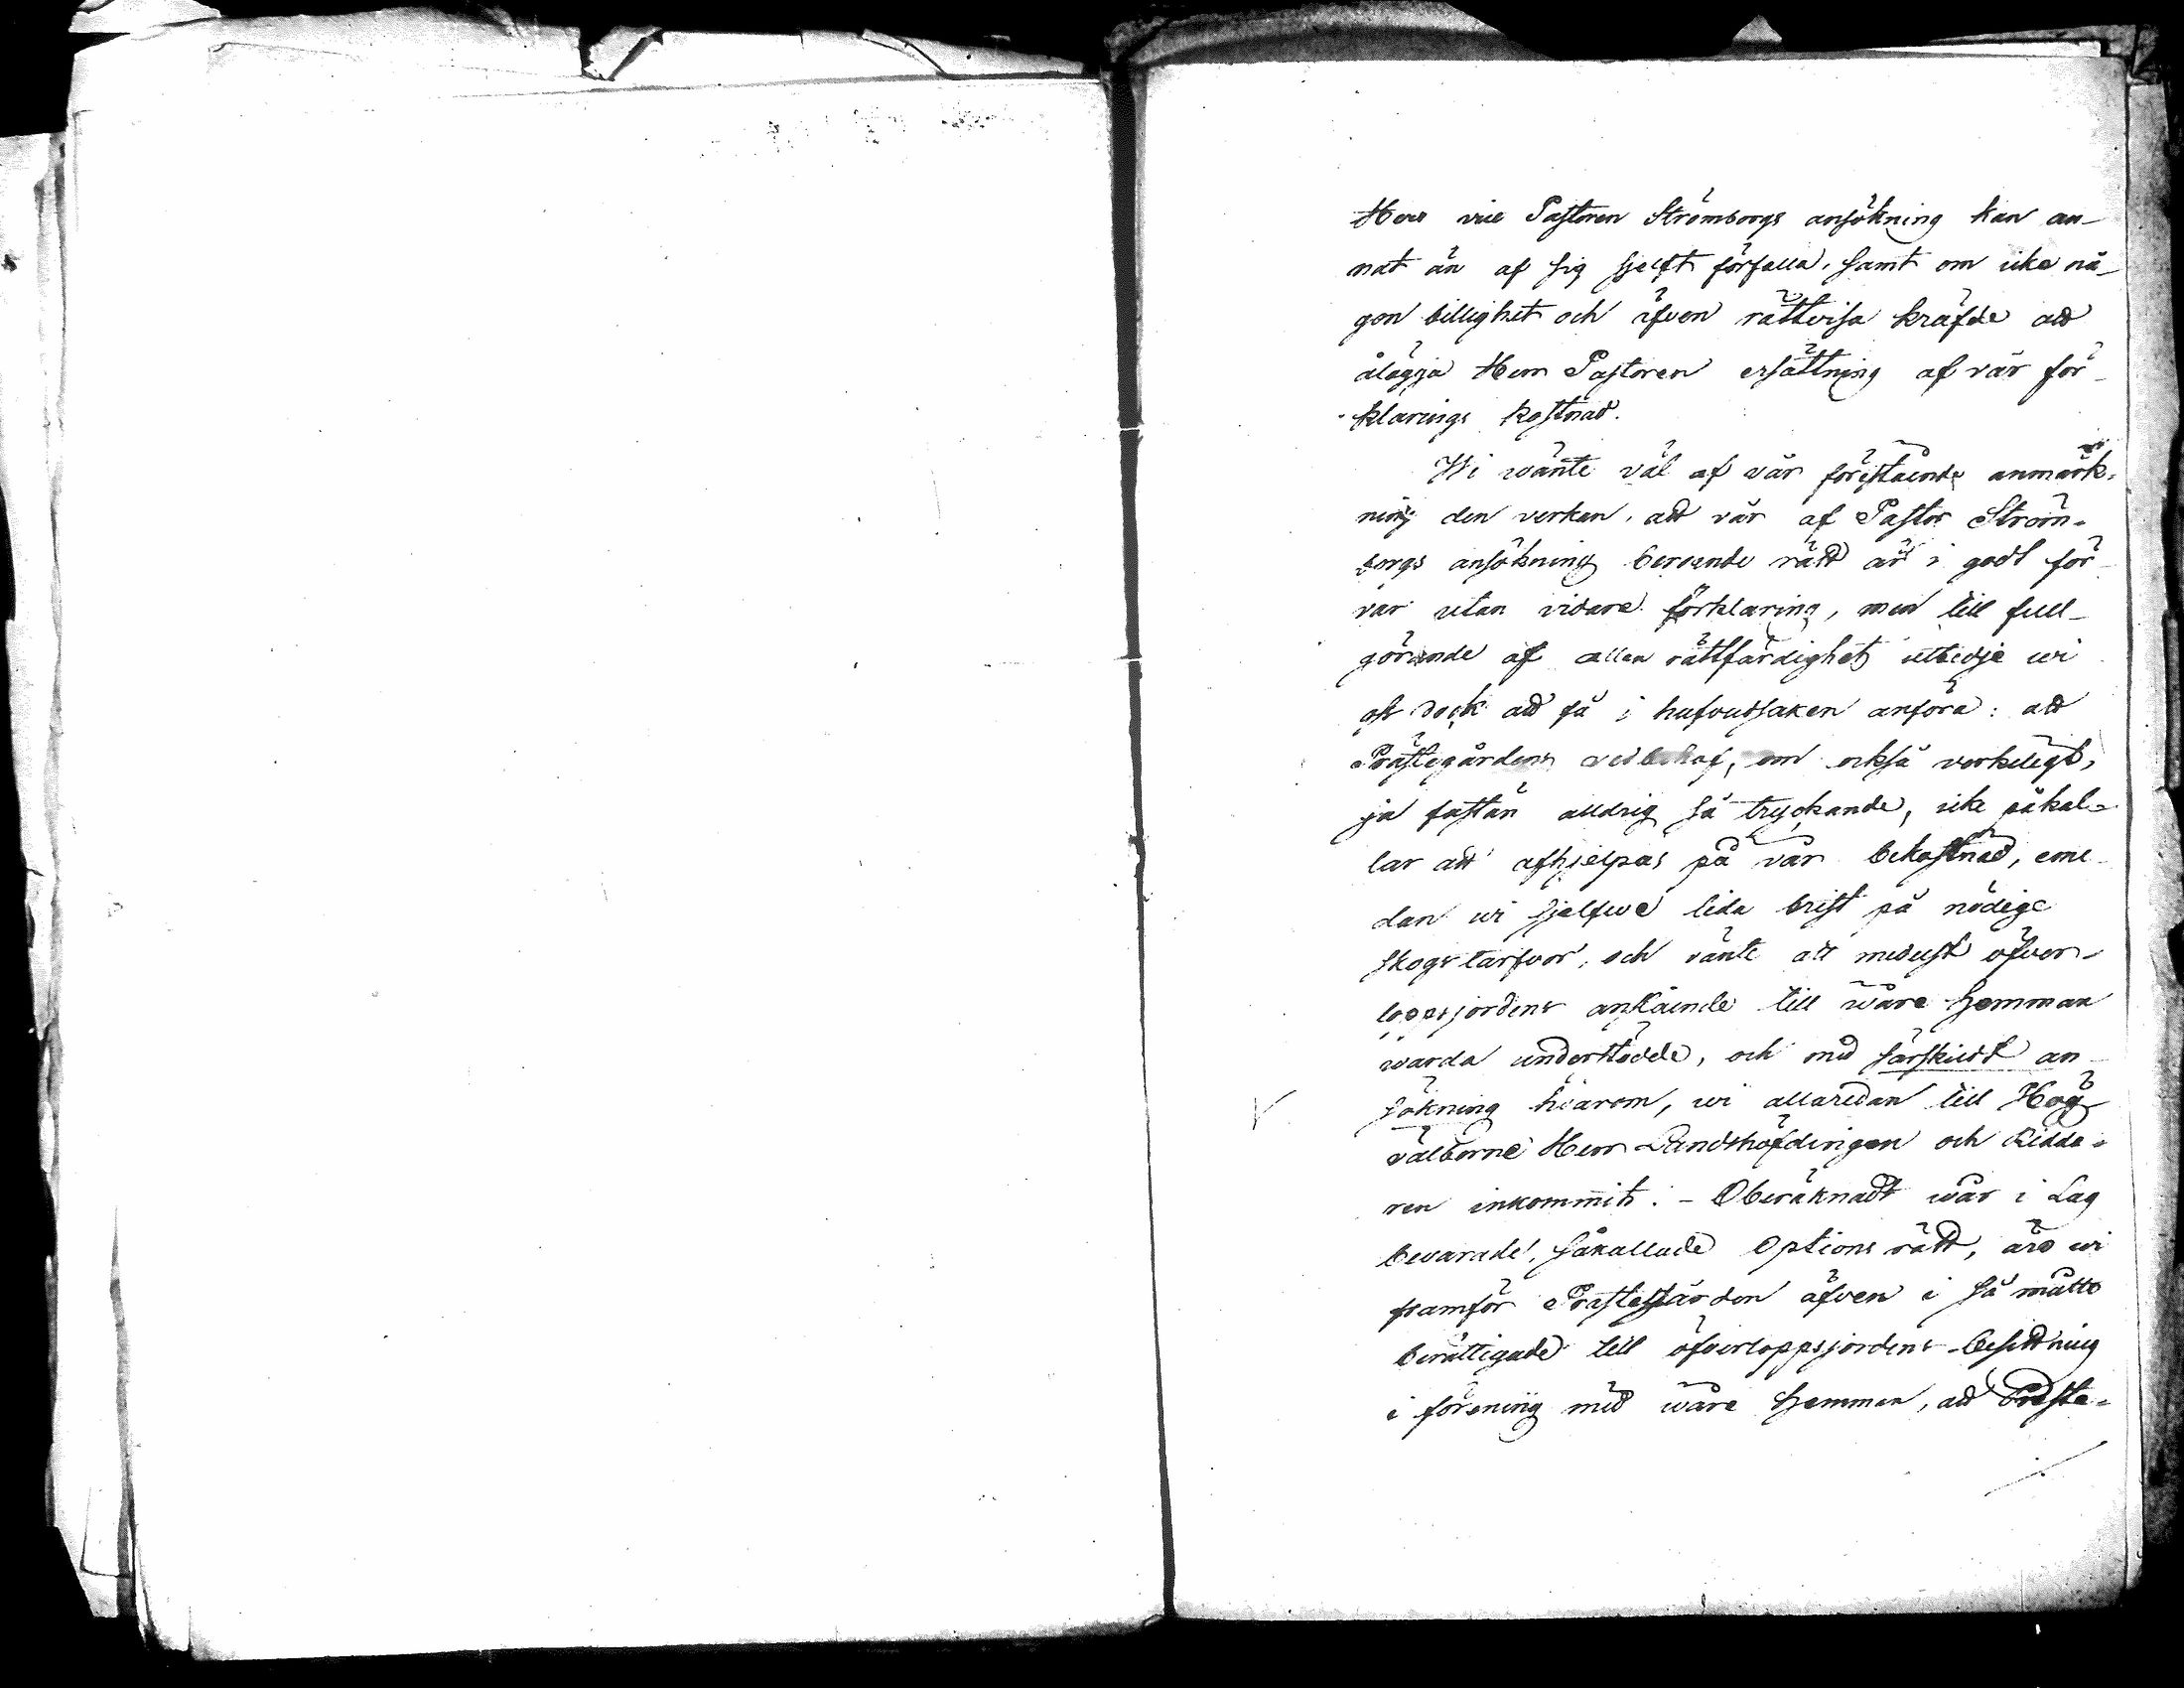 Herr vice Pastoren Strömborgs ansökning kan an-
nat än af sig sjelft förfalla, samt om icke nå-
gon billighet och äfven rättvisa kräfde att
ålägga Herr Pastoren ersättning af vår för-
klarings kostnad.
Wi wänte väl af vår förestående anmärk-
ning den verkan, att vår af Pastor Ström-
borgs ansökning beroende rätt är i godt för-
var utan vidare förklaring, men till full-
görande af allan rättfärdighet utbedje wi
oss dock att få i hufvudsaken anföra: att
Prästegårdens vedbehof, om också verkeligt,
ja fastän alldrig så tryckande, icke påkal-
lar att afhjelpas på vår bekostnad, eme-
dan wi sjelfwe lida brist på nödige
skogstarfvor, och vänte att medelst öfver-
loppsjordens anslående till wåre hemman
warda understödde, och med särskildt an-
sökning härom, wi allaredan till Hög-
välborne Herr Landshöfdingen och Ridda-
ren inkommit. - Oberäknadt wår i Lag
bevarade, såkallade Options rätt, äro wi
framför Prästegården äfven i så måtto
berättigade till öfverloppsjordens besittning
i förening med wåre hemman, att Präste-